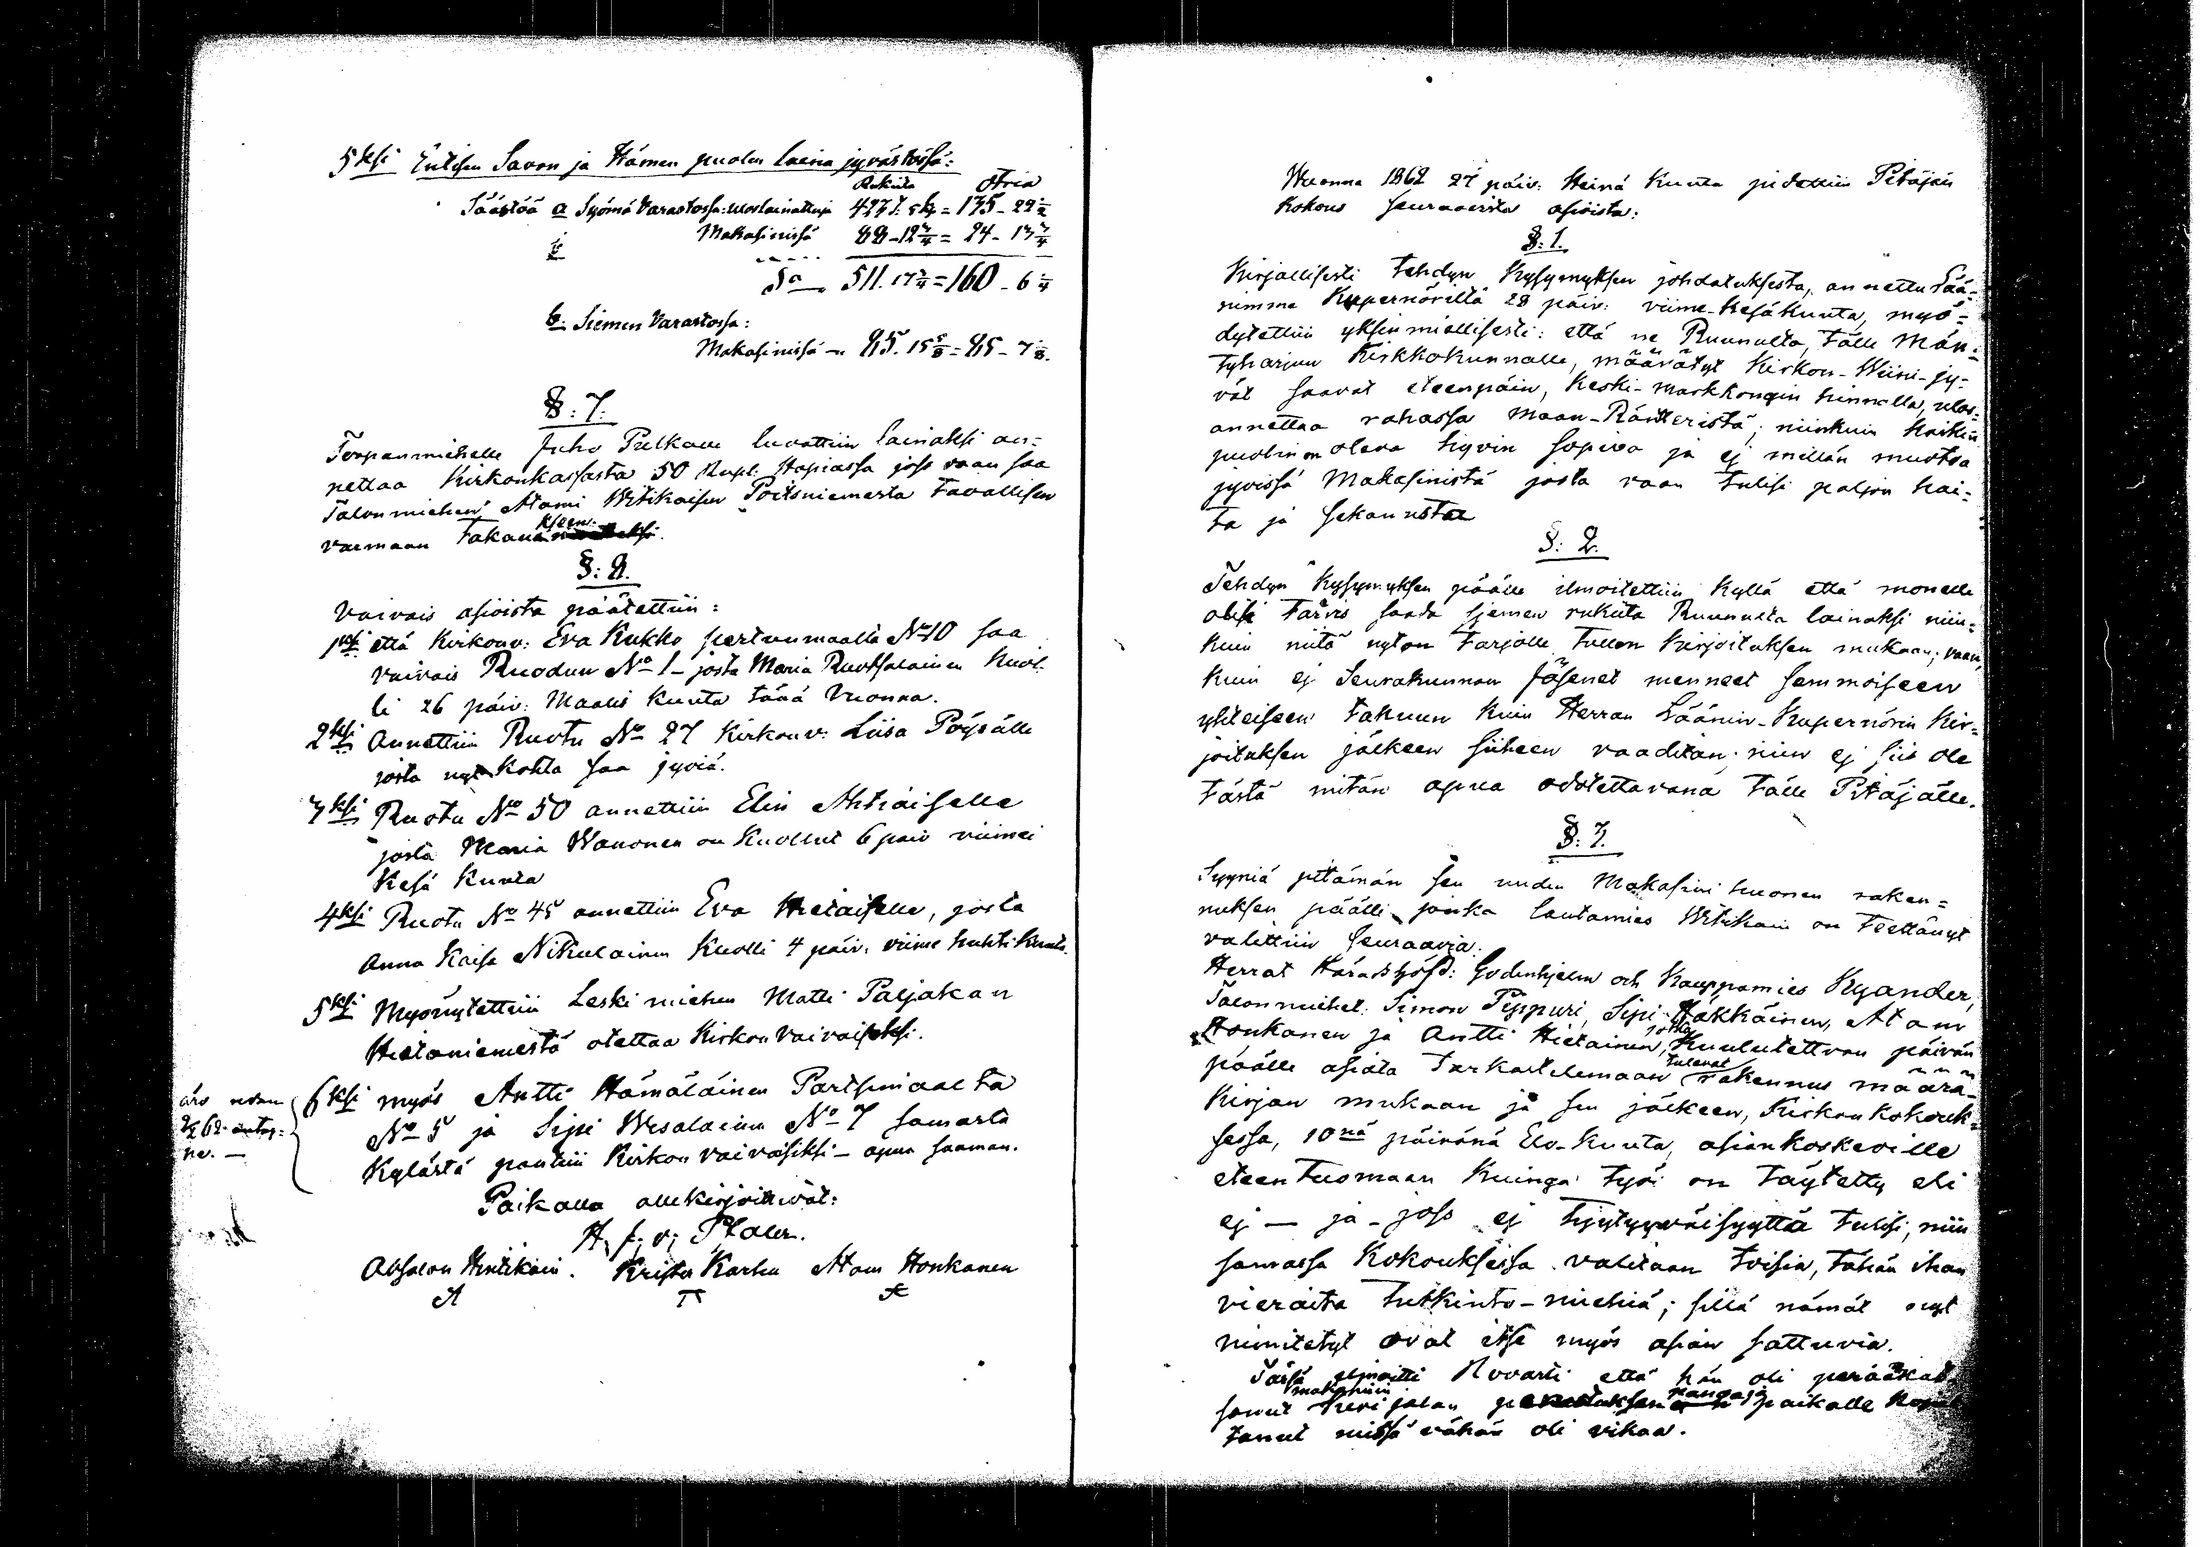 5ksi Entisen Savon ja Hämen puolen laina jyvästössä:
Rukiita Otria
Säästöä a Syömä Varastossa: uloslainattuja 423 7/: 5 kp = 135 - 22 1/2
Makasinissä 88 - 12 3/4 = 24 - 13 3/4
Sa 511. 17 3/4 = 160 - 6 1/4
b: Siemen Varastossa:
Makasinissä - 85. 15 5/8 = 85 - 7
§: 7.
Torpanmiehelle Juho Pulkalle luvattiin lainaksi an=
nettaa Kirkonkassasta 50 Rupl. Hopiassa joss vaan saa
Talonmiehen Atami Witikaisen Poitsniemestä tavallisen
varmaan takauxseen.
§: 8.
Vaivais asioista päätettiin:
1ksi että Kirkonv: Eva Kukko pertunmaalta No 10 saa
vaivais Ruodun No 1 - josta Maria Ruotsalainen kuol
li 26 päiv: Maalis Kuuta tänä Vuonna.
2ksi Annettiin Ruotu No 27 Kirkonv: Liisa Pöysälle
josta nyt kohta saa jyviä.
3ksi Ruotu No 50 annettiin Elin Ahtiaiselle
josta Maria Wanonen on Kuollut 6 päiv viimei
Kesä Kuuta
4ksi Ruotu No 45 annettiin Eva Hietaiselle, josta
Anna Kaisa Nikulainen Kuolli 4 päiv. viime huhti Kuuta.
5ksi Myönnytettiin Leskimiehen Matti Paljakan
Hietaniemestä otettaa Kirkon Vaivaiseksi.
6ksi myös Antti Hämäläinen Partsimaalta
No 5 ja Sipi Wesalainen No 7 samasta
Kylästä pantiin Kirkon vaivaisiksi - apua saaman.
äro redan
62 antag:
ne. -
Paikalla allekirjoittivat:
H. f. v; Ptalen.
Absalon Hintikain. Krister Karhu Atam Honkanen
Wuonna 1862 27 päiv: Heinä Kuuta pidettiin Pitäjän
Kokous seuraavista asioista:
§: 1.
Kirjallisesti tehdyn Kysymyksen johdatuksesta, annettu Lää=
nimme Kupernörilta 28 päiv: viime-Kesäkuuta, myö=
dytettiin yksinmielisesti: että ne Ruunulta, tälle Män=
tyharjun Kirkkokunnalle, määrätyt Kirkon-Wiini-jy=
vät saavat eteenpäin, Keski-markkongin hinnalla, ulos=
annettaa rahassa Maan-Ränteristä; niinkuin kaikin
puolin on oleva hyvin sopiva ja ej millän muotoa
jyvissä Makasinistä josta vaan tulisi paljon hai=
ta ja sekannusta
§: 2.
Tehdyn Kysymyksen päälle ilmoitettiin Kyllä että monelle
olisi tarves saada siemen rukiita Ruunulta lainaksi niin=
kuin niitä nyt on tarjolle tullen kirjoituksen mukaan; vaan,
kuin ej Seurakunnan Jäsenet menneet semmoiseen
yhteiseen takuun kuin Herran Läänin-Kupernörin Kir=
joituksen jälkeen siiheen vaaditan; niin ej siis ole
tästä mitän apua odotettavana tälle Pitäjälle.
§: 3.
Syyniä pitämän sen uuden Makasini huonen raken=
nuksen päälle, jonka lautamies Witikain on teettänyt
valittiin seuraavia:
Herrat Häradshöfd: Godenhjelm och Kauppamies Kyander,
Talonmiehet: Simon Pippuri, Sipi Häkkäinen, Atam
Honkanen ja Antti Hietainen, jotka Kuulutettvan päivän
päälle asiata tarkastelemaan tulevat rakennus määrä=
Kirjan mukaan ja sen jälkeen, Kirkon kokouk=
sessa, 10nä päivänä Elo-Kuuta, asiankoskeville
eteentuomaan kuinga työ on täytetty eli
ej - ja - joss ej tyytyväisyyttä tulisi, niin
samassa Kokouksessa valitaan toisia, tähän ihan
vieraita tutkinto-miehiä; sillä nämät nyt
nimitetyt ovat itse myös asian sattuvia.
Tässä ilmoitti Rovasti että hän oli peräkat
sonut makasinin kivijalan paikalle
tanut missä vähän oli vikaa.